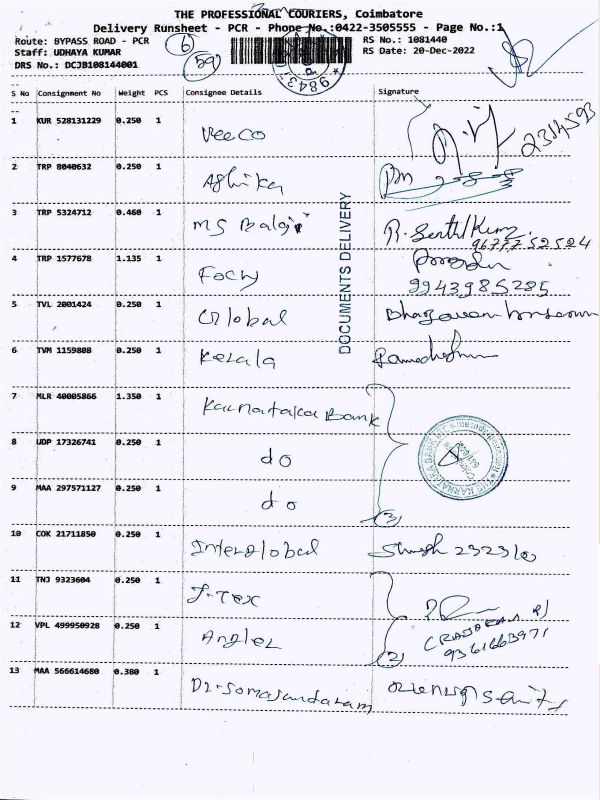 THE PROFESSIONAL COURIERS, Coimbatore
Delivery Runsheet - PCR - Phone No.:0422-3505555 - Page No.:1
Route: BYPASS ROAD - PCR
RS No.: 1081440
Staff: UDHAYA KUMAR
RS Date: 20-Dec-2022
DRS No.: DCJB108144001
6
59
S No Consignment No Weight PCS Consignee Details Signature
1 KUR 528131229 0.250 1 Veeco 2314593
2 TRP 8040632 0.250 1 Ashika
3 TRP 5324712 0.460 1 MS Balaji R. Senthil Kumar
9677752524
4 TRP 1577678 1.135 1
9943985285
5 TVL 2001424 0.250 1 Global
6 TVM 1159808 0.250 1 Kerala
7 MLR 40005866 1.350 1 Karnataka Bank
8 UDP 17326741 0.250 1 do
9 MAA 297571127 0.250 1 do
(3)
10 COK 21711850 0.250 1 Interglobal
11 TNJ 9323604 0.250 1 J-Tex
12 VPL 499950928 0.250 1 Angler
(RAJARAM R)
9361663971
(2)
13 MAA 566614680 0.380 1 Dr-Somasundaram
DOCUMENTS DELIVERY